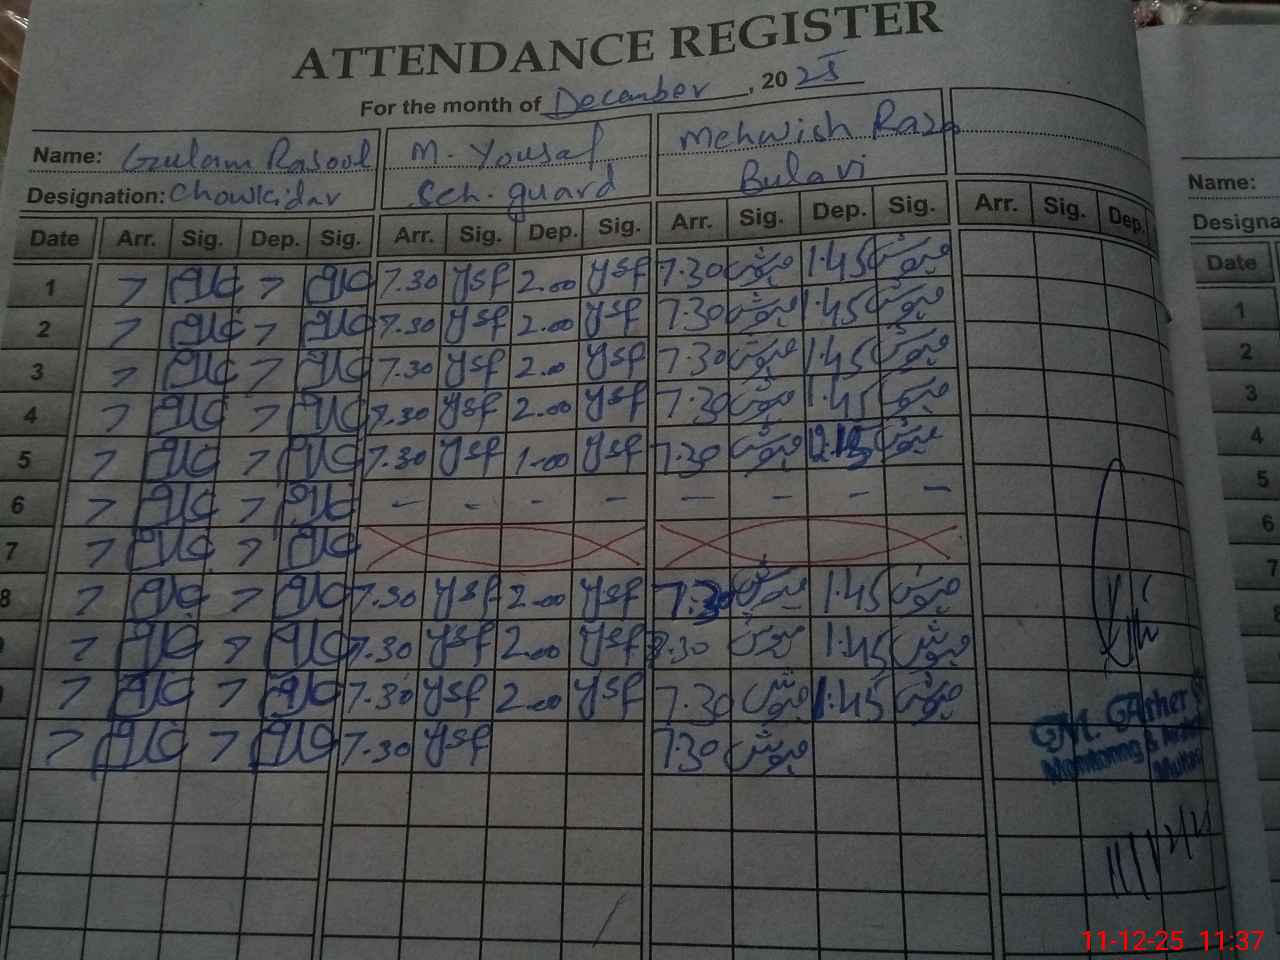 ATTENDANCE REGISTER
For the month of December, 2025
Name: Gulam Rasool M. Yousaf Mehwish Raza
Designation: Chowkidar Sch. guard Bulavi
Date Arr. Sig. Dep. Sig. Arr. Sig. Dep. Sig. Arr. Sig. Dep. Sig. Arr. Sig. Dep.
1 7 7 7.30 Ysf 2.00 Ysf 7.30 مہوش 1.45 مہوش
2 7 7 7.30 Ysf 2.00 Ysf 7.30 مہوش 1.45 مہوش
3 7 7 7.30 Ysf 2.00 Ysf 7.30 مہوش 1.45 مہوش
4 7 7 7.30 Ysf 2.00 Ysf 7.30 مہوش 1.45 مہوش
5 7 7 7.30 Ysf 1.00 Ysf 7.30 مہوش 12.15 مہوش
6 7 7 - - - - - - - -
7 7 7
8 7 7 7.30 Ysf 2.00 Ysf 7.30 مہوش 1.45 مہوش
7 7 7.30 Ysf 2.00 Ysf 7.30 مہوش 1.45 مہوش
7 7 7.30 Ysf 2.00 Ysf 7.30 مہوش 1.45 مہوش
7 7 7.30 Ysf 7.30 مہوش
Monitoring &
Name:
Designa
Date
1
2
3
4
5
6
7
11-12-25 11:37